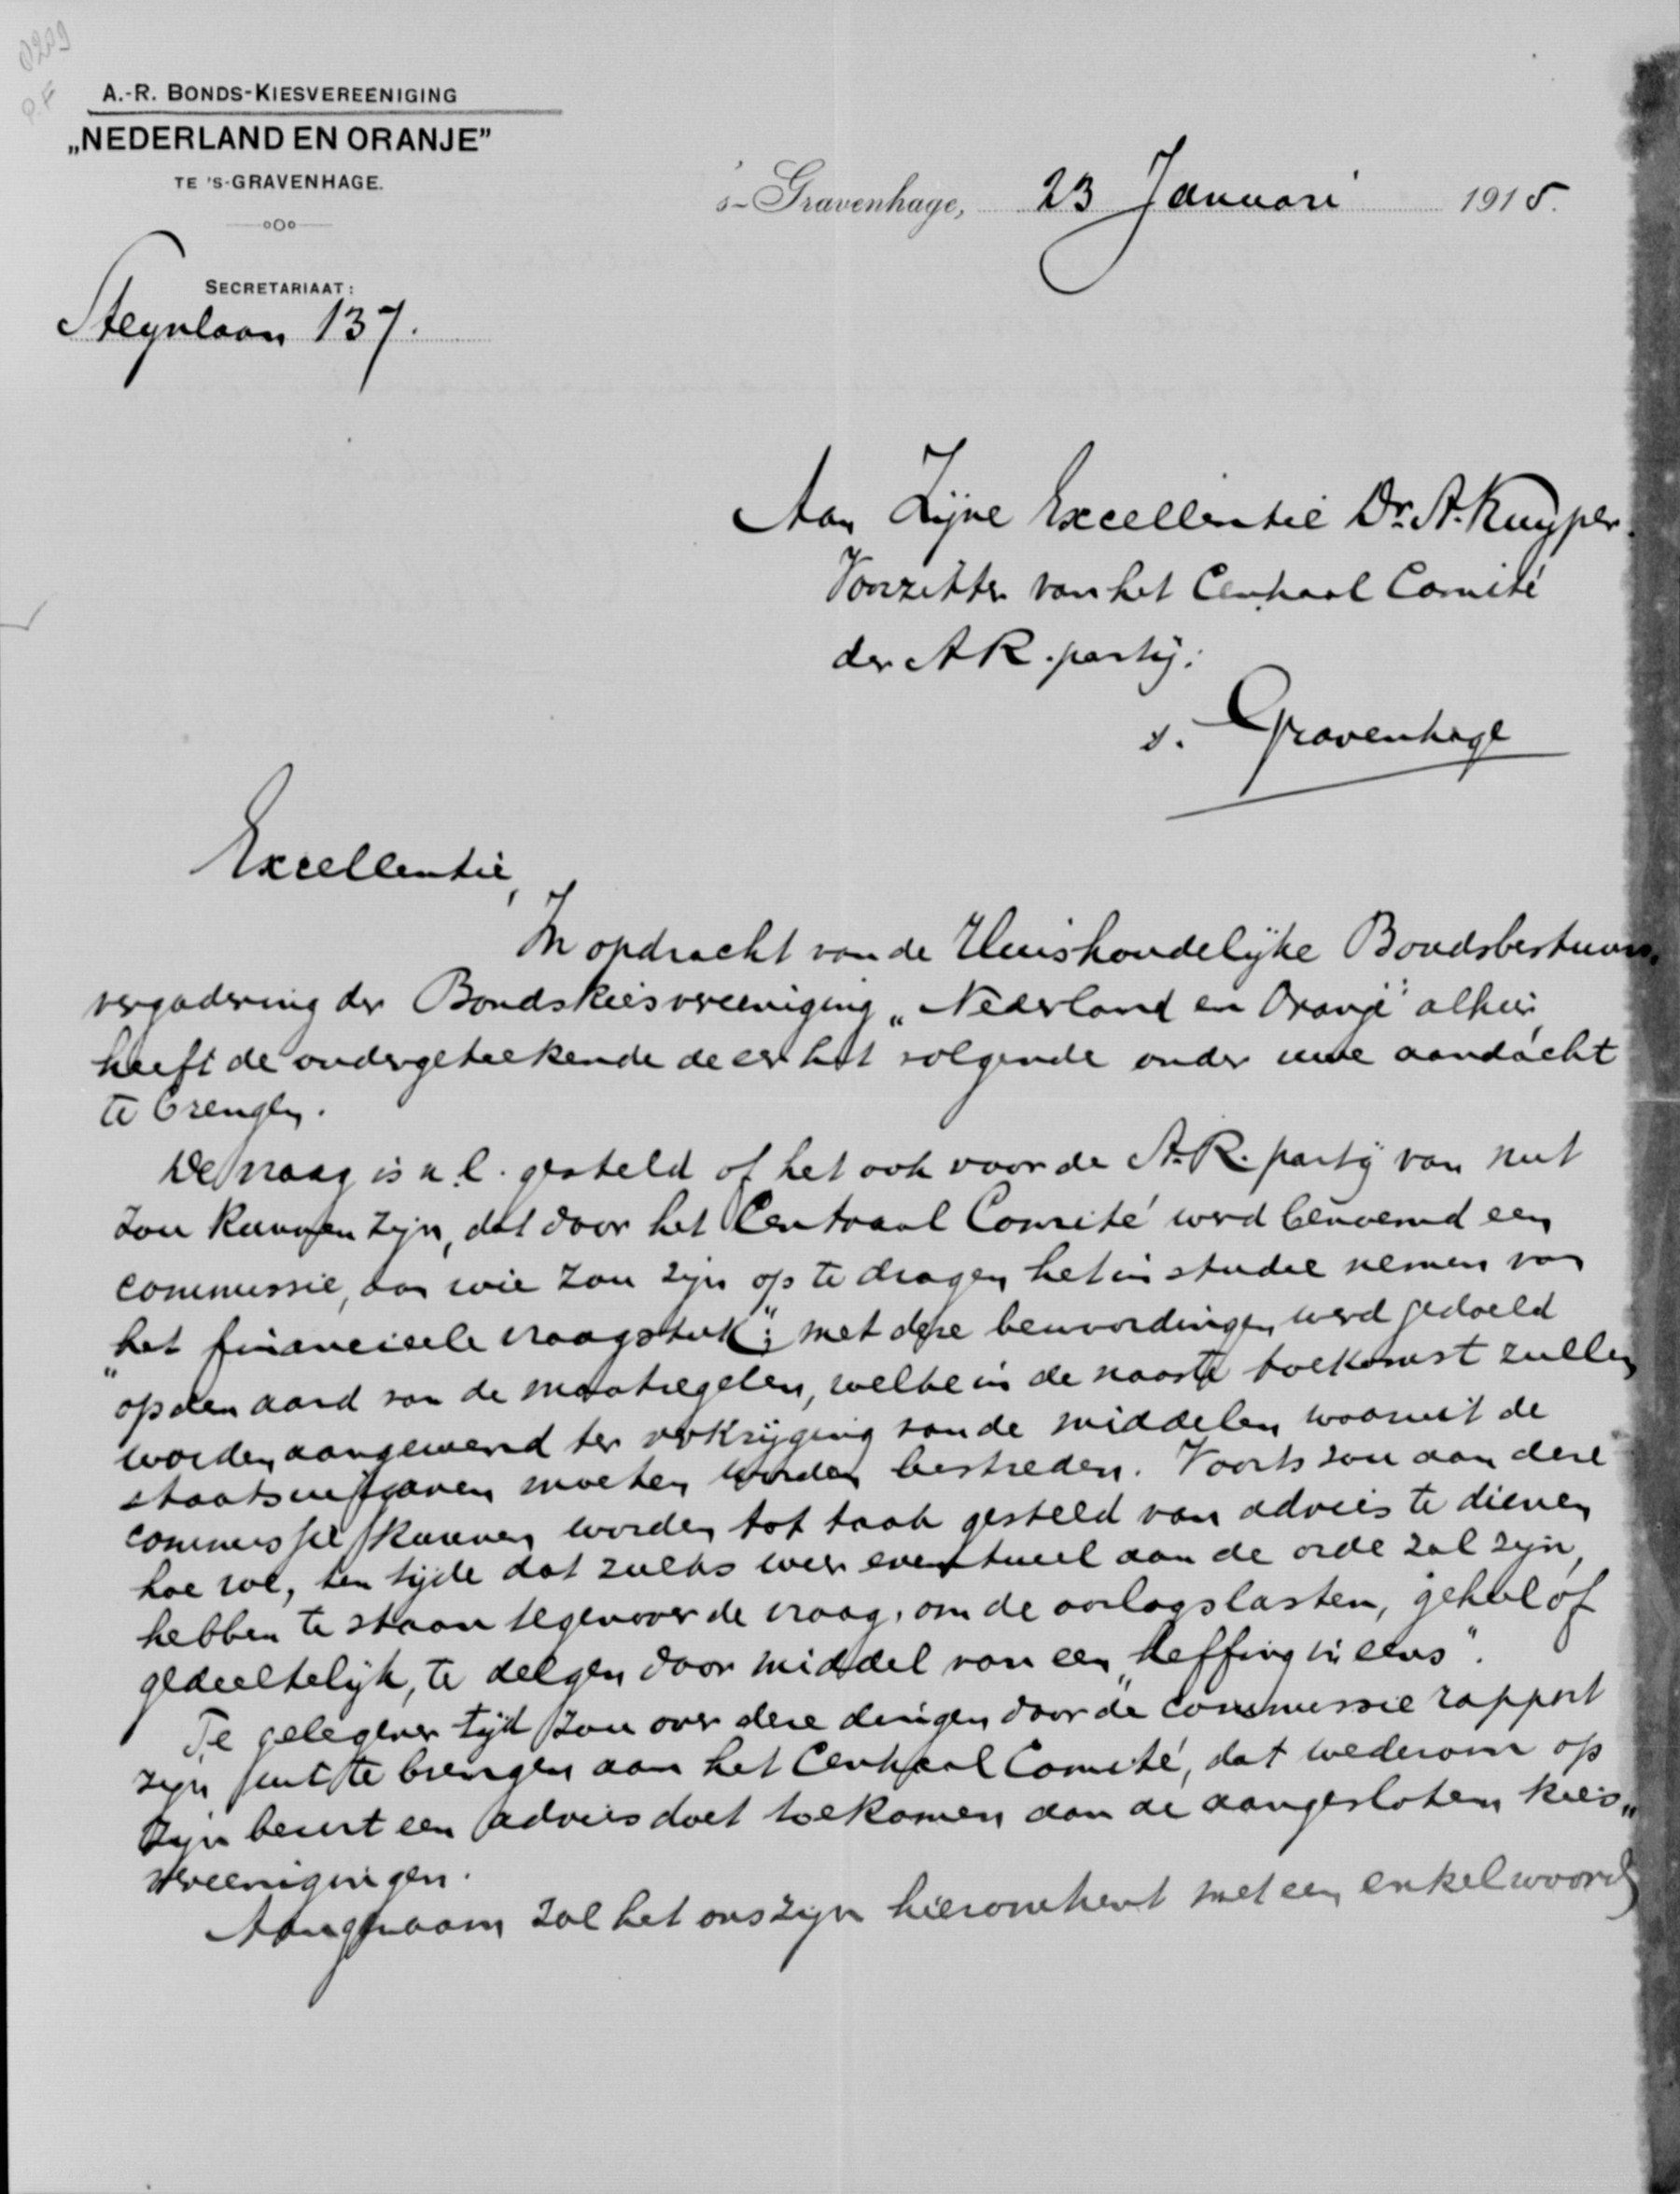 0209
P.F
A.-R. BONDS-KIESVEREENIGING
„NEDERLAND EN ORANJE”
TE 'S-GRAVENHAGE.
SECRETARIAAT:
Steynlaan 137.
's-Gravenhage, 23 Januari 1918.
Aan Zijne Excellentie Dr. A. Kuyper.
Voorzitter van het Centraal Comité
der AR. partij.
s. Gravenhage
Excellentie,
In opdracht van de Huishoudelijke Bondsbestuurs,
vergadering der Bondskiesvereeniging „Nederland en Oranje" alhier,
heeft de ondergeteekende de eer het volgende onder uwe aandacht
te brengen.
De vraag is n.l. gesteld of het ook voor de A.R. partij van nut
zou kunnen zijn, dat door het Centraal Comité werd benoemd een
commissie, aan wie zou zijn op te dragen het in studie nemen van
„het financieele vraagstuk"; met deze bewoordingen werd gedoeld
op den aard van de maatregelen, welke in de naaste toekomst zullen
worden aangewend ter verkrijging van de middelen waaruit de
staatsuitgaven moeten worden bestreden. Voorts zou aan deze
commissie kunnen worden tot taak gesteld van advies te dienen
hoe we, ten tijde dat zulks weer eventueel aan de orde zal zijn,
hebben te staan tegenover de vraag, om de oorlogslasten, geheel of
gedeeltelijk, te delgen door middel van een „heffing in eens".
Te gelegener tijd zou over deze dingen door de commissie rapport
zijn uit te brengen aan het Centraal Comité, dat wederom op
zijn beurt een advies doet toekomen aan de aangesloten kies„
vereenigingen.
Aangenaam zal het ons zijn hieromtrent met een enkel woord